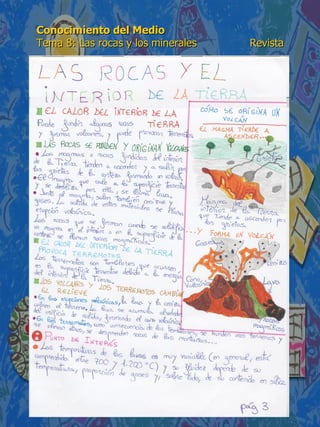 Conocimiento del Medio
Tema 8: Las rocas y los minerales Revista
LAS ROCAS Y EL
INTERIOR DE LA TIERRA
EL CALOR DEL INTERIOR DE LA
TIERRA
Puede fundir algunas rocas
y formar volcanes, y puede provocar terremotos
LAS ROCAS SE FUNDEN Y ORIGINAN VOLCANES
Los magmas o rocas fundidas del interior
de la Tierra tienden a ascender y a salir por
las grietas de la corteza formando un volcán.
que sale a la superficie terrestre
y se
gases. La salida de estos materiales se llama
erupción volcánica.
Las rocas que se forman cuando se solidifica
el magma en el interior o en la superficie de la
corteza se llaman rocas magmáticas.
EL CALOR DEL INTERIOR DE LA TIERRA
PROVOCA TERREMOTOS
Los terremotos son temblores que ocurren
en la superficie terrestre debido a la energía
del interior de la Tierra.
LOS VOLCANES Y LOS TERREMOTOS CAMBIAN
EL RELIEVE
En las erupciones volcánicas, la lava y la ceniza
cubren el terreno. La lava se acumula alrededor
del orificio de salida, formando el cono volcánico.
En los terremotos, como consecuencia de los temblores, se hunden los terrenos y
se abren otros, se desprenden rocas de las montañas...
PUNTO DE INTERÉS
Las temperaturas de las lavas es muy variable (en general, está
comprendida entre 700 y 1.200 °C) y su fluidez depende de su
temperatura, proporción de gases y, sobre todo, de su contenido en sílice.
CÓMO SE ORIGINA UN
VOLCÁN
EL MAGMA TIENDE A
ASCENDER...
Magma del
interior de la Tierra
que tiende a ascender por
grietas.
...Y FORMA UN VOLCÁN
Gases
Ceniza
Cono
volcánico
Lava
Rocas
magmáticas
pág 3